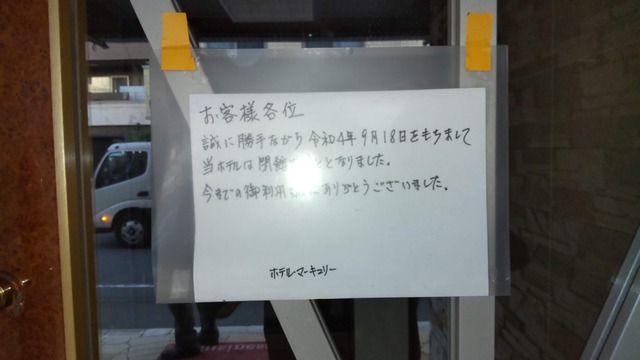 お客様各位
誠に勝手ながら 令和4年9月18日をもちまして
当ホテルは閉 となりました。
今までの御利用 ありがとうございました。
ホテル・マーキュリー